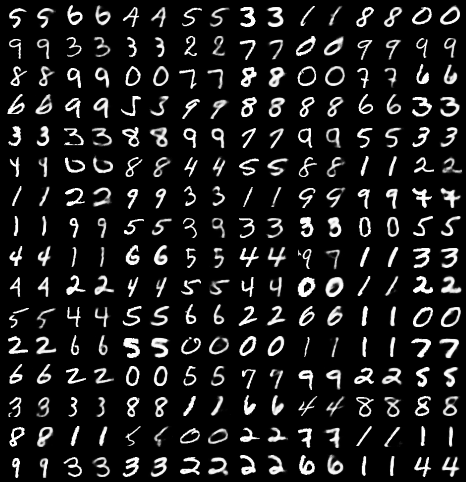 5 5 6 6 4 4 5 5 3 3 1 1 8 8 0 0
9 9 3 3 3 3 2 2 7 7 0 0 9 9 9 9
8 8 9 9 0 0 7 7 8 8 0 0 7 7 6 6
6 6 9 9 5 3 9 9 8 8 8 8 6 6 3 3
3 3 3 3 8 8 9 9 7 7 9 9 5 5 3 3
4 4 0 0 8 8 4 4 5 5 8 8 1 1 2 2
1 1 2 2 9 9 3 3 1 1 9 9 9 9 7 7
1 1 9 9 5 5 3 9 3 3 3 3 0 0 5 5
4 4 1 1 6 6 5 5 4 4 9 7 1 1 3 3
4 4 2 2 4 4 5 5 4 4 0 0 1 1 2 2
5 5 4 4 5 5 6 6 2 2 6 6 1 1 0 0
2 2 6 6 5 5 0 0 0 0 1 1 1 1 7 7
6 6 2 2 0 0 5 5 7 7 9 9 2 2 5 5
3 3 3 3 8 8 1 1 6 6 4 4 8 8 8 8
8 8 1 1 5 0 0 2 2 7 7 1 1 1 1
9 9 3 3 3 3 2 2 2 2 6 6 1 1 4 4